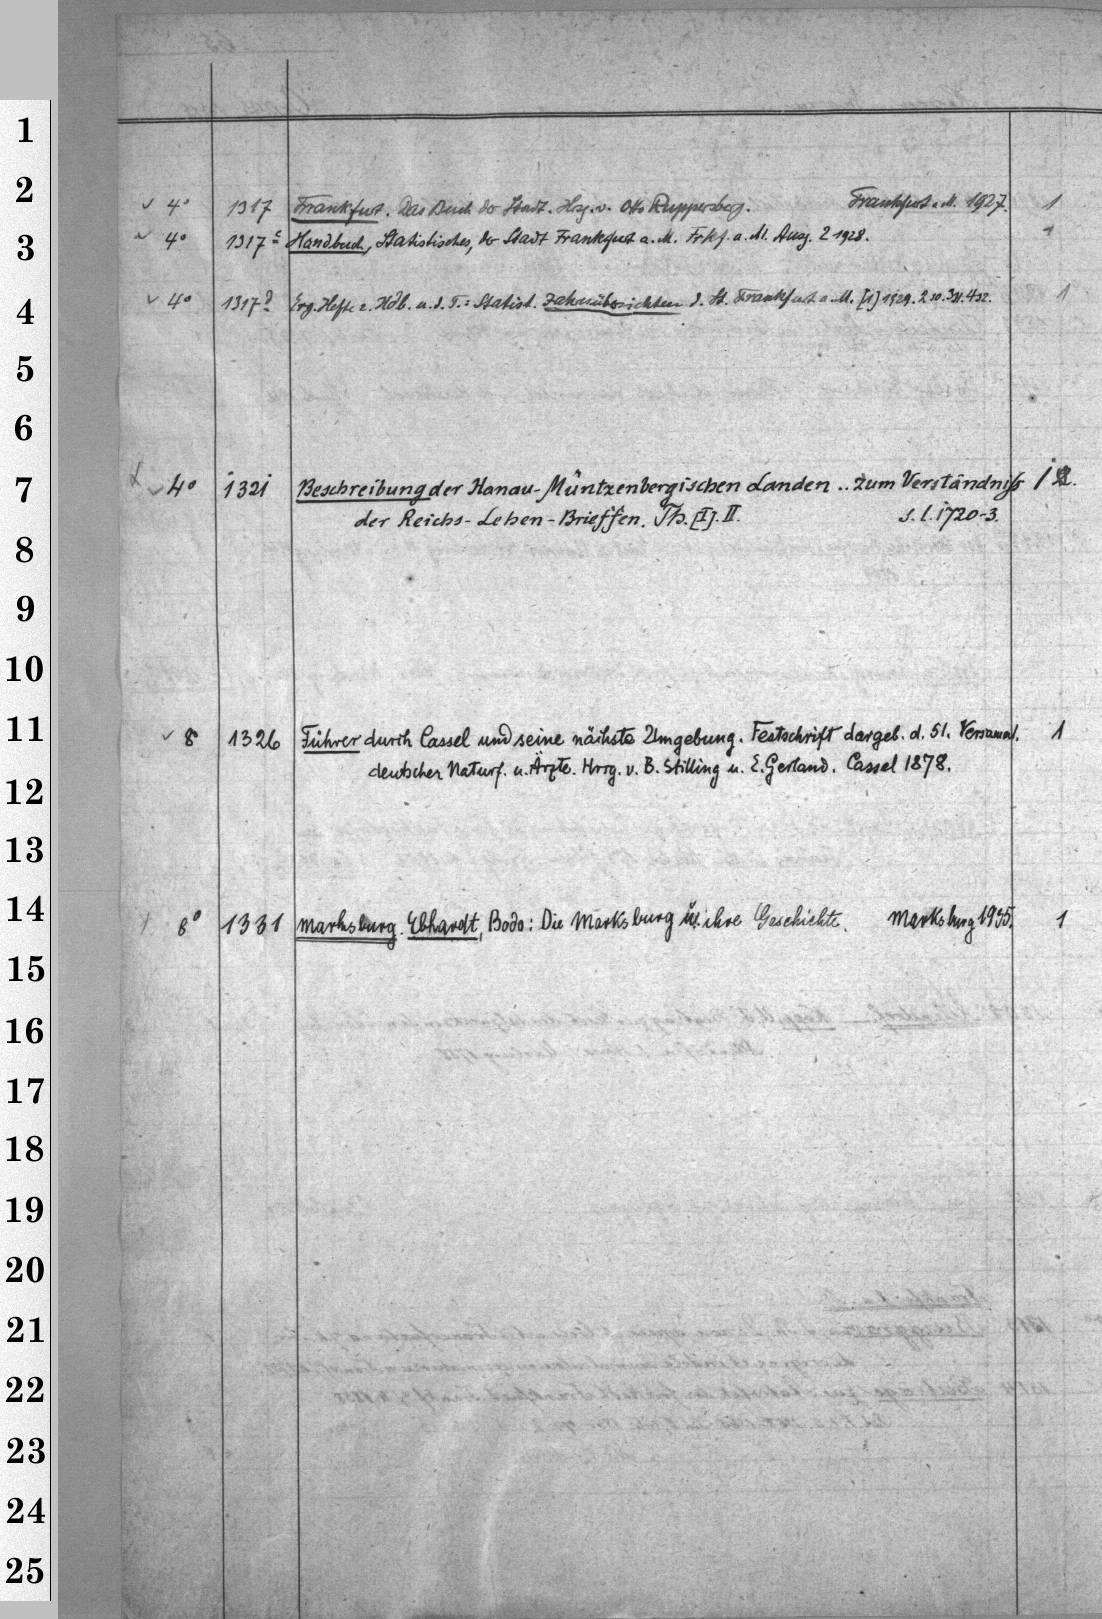 1
2
✓ 4° 1317 Frankfurt. Das Buch der Stadt. Hrsg. v. Otto Ruppersberg. Frankfurt a. M. 1927. 1
3
✓ 4° 1317 c Handbuch, Statistisches, der Stadt Frankfurt a. M. Frkf. a. M. Ausg. 2 1928. 1
4
✓ 4° 1317 d Erg. Hefte z. Hdb. u. d. T.: Statist. Jahresübersichten d. St. Frankfurt a. M. [1] 1929. 2 30. 3 31. 4 32. 1
5
6
7
✓ 4° 1321 Beschreibung der Hanau-Müntzenbergischen Landen .. zum Verständniß 1
der Reichs-Lehen-Brieffen. Th. [I]. II. s. l. 1720-3.
8
9
10
11
✓ 8 1326 Führer durch Cassel und seine nächste Umgebung. Festschrift dargeb. d. 51. Versamml. 1
deutscher Naturf. u. Ärzte. Hrsg. v. B. Stilling u. E. Gerland. Cassel 1878.
12
13
14
8° 1331 Marksburg. Ebhardt, Bodo: Die Marksburg u. ihre Geschichte. Marksburg 1935. 1
15
16
17
18
19
20
21
22
23
24
25